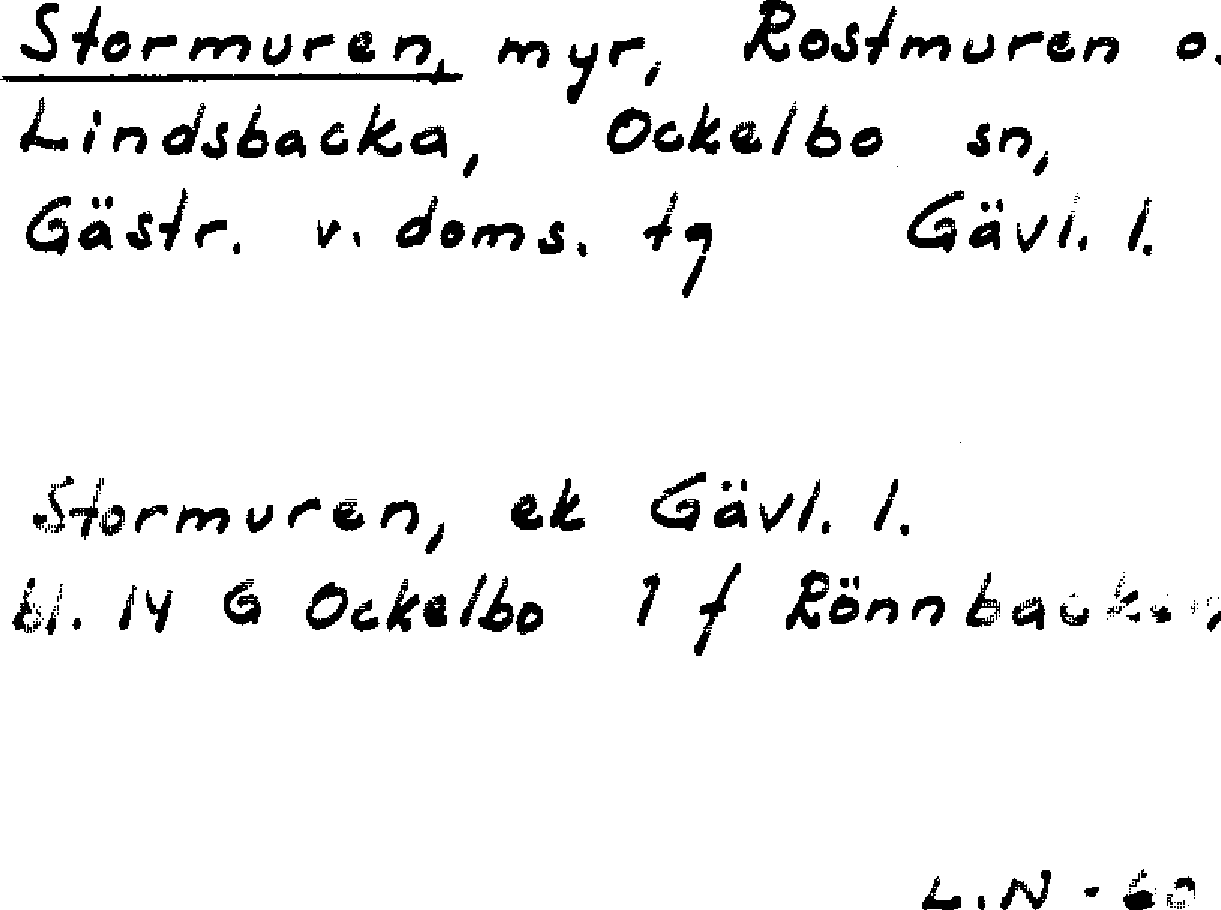 Stormuren, myr, Rostmuren o.
Lindsbacka, Ockelbo sn,
Gästr. v. doms. tg Gävl. l.
Stormuren, ek Gävl. l.
bl. 14 G Ockelbo 1 f Rönnbacken
L.N - 60